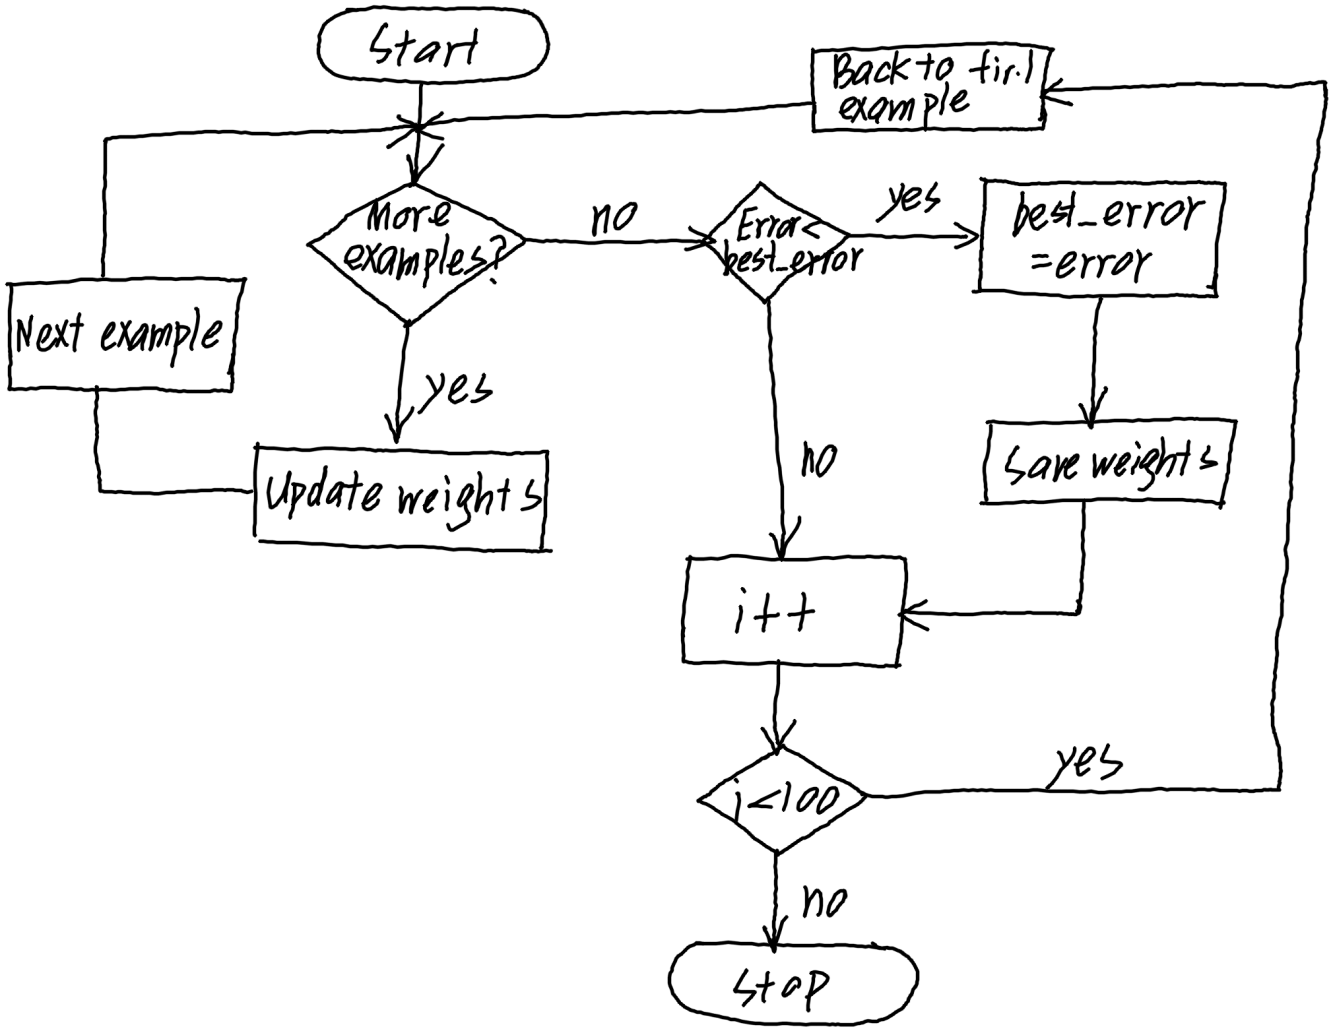 Start
Back to
example
More
examples?
no
Error<
best_error
yes
best_error
=error
Next example
yes
Update weights
no
Save weights
i++
i<100
yes
no
stop